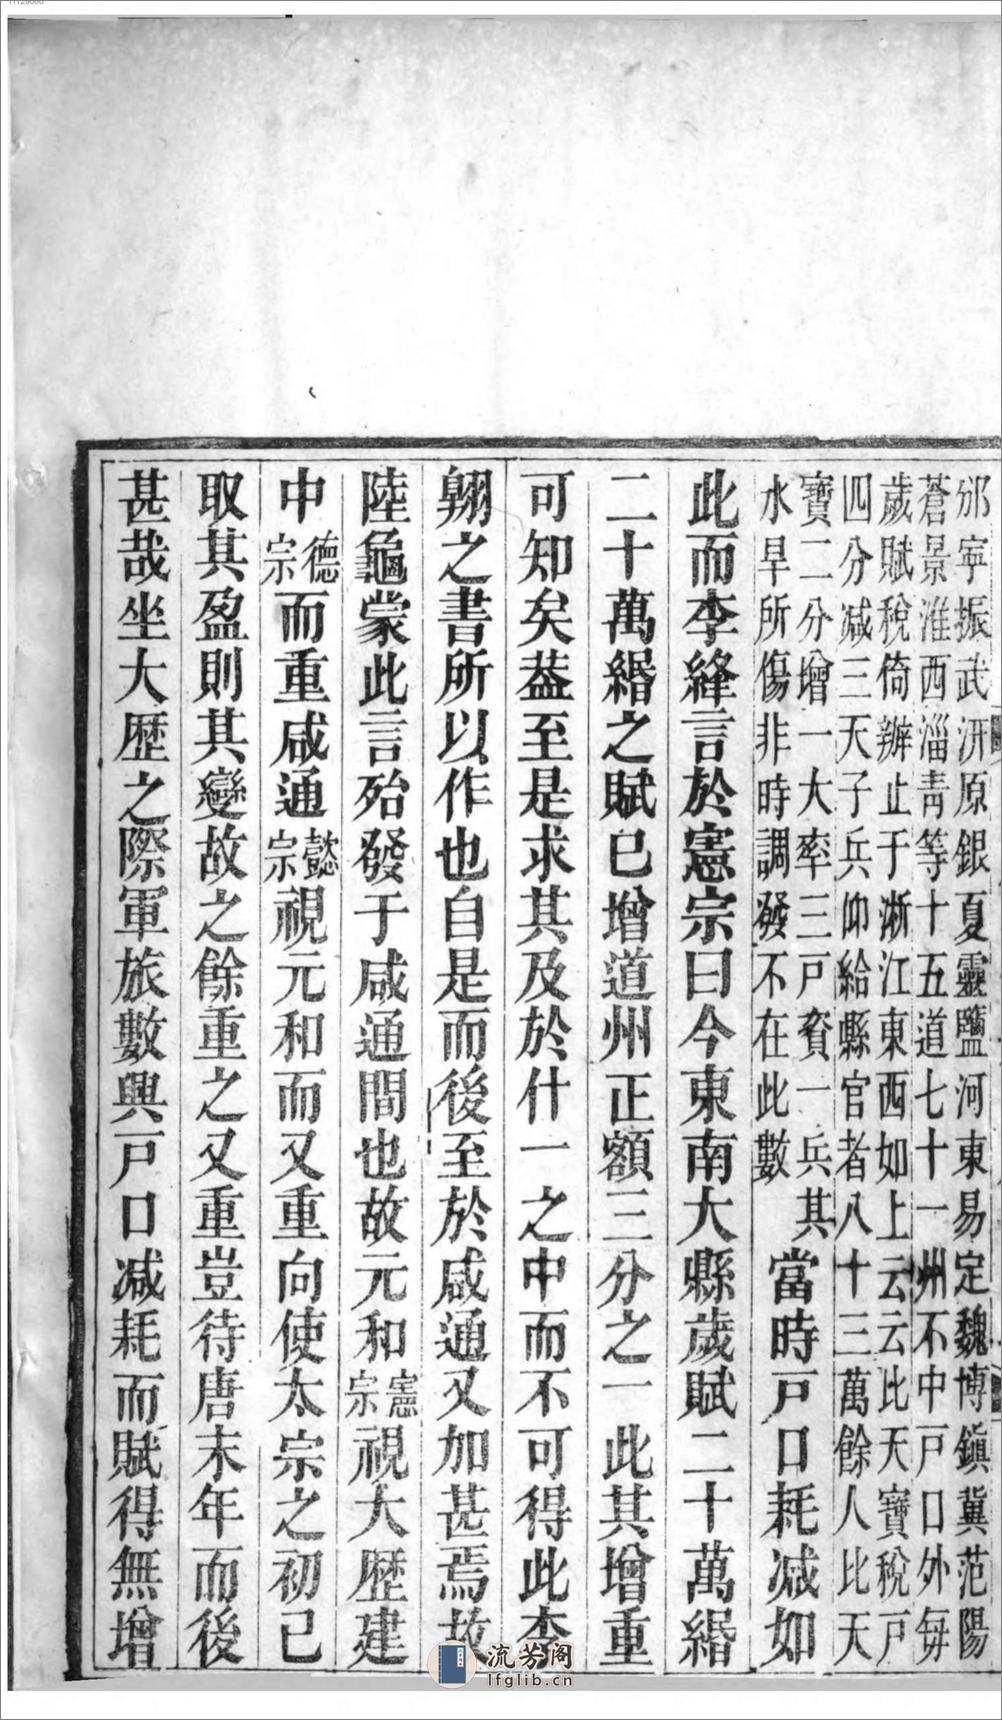 邠寧振武涇原銀夏靈鹽河東易定魏博鎮冀范陽
蒼景淮西淄青等十五道七十一州不中戸口外每
歲賦稅倚辦止于浙江東西如上云云比天寶稅戸
四分減三天子兵仰給縣官者八十三萬餘人比天
寶二分增一大率三戸資一兵其
水旱所傷非時調發不在此數
當時戸口耗減如
此而李絳言於憲宗曰今東南大縣歲賦二十萬緡
二十萬緡之賦已增道州正額三分之一此其增重
可知矣葢至是求其及於什一之中而不可得此李
翱之書所以作也自是而後至於咸通又加甚焉故
陸龜蒙此言殆發于咸通間也故元和憲宗視大歷建
中德宗而重咸通懿宗視元和而又重向使太宗之初已
取其盈則其變故之餘重之又重豈待唐末年而後
甚哉坐大歷之際軍旅數興戸口減耗而賦得無增
流芳阁
lfglib.cn